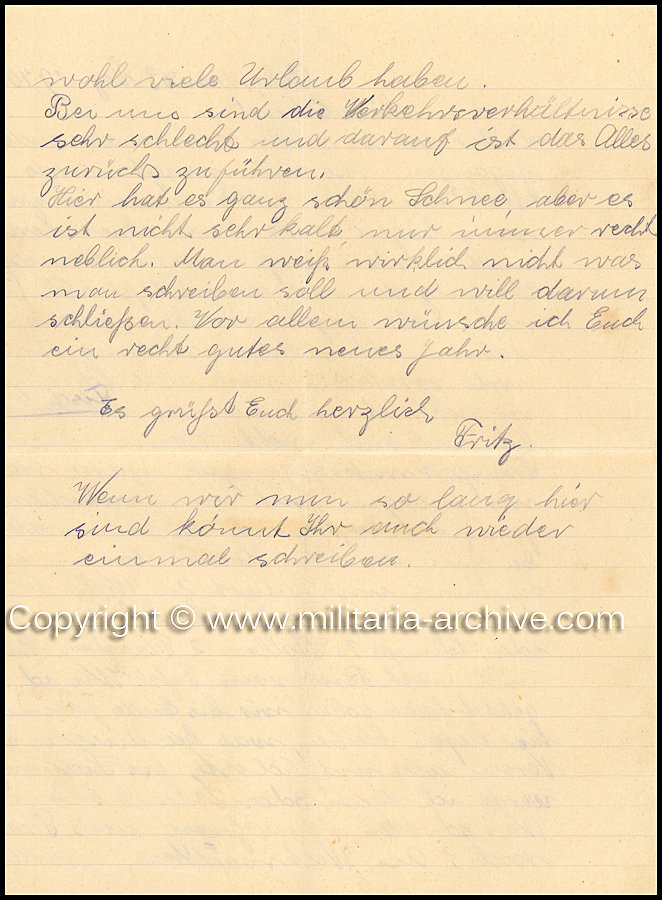 wohl viele Urlaub haben.
Bei uns sind die Verkehrsverhältnisse
sehr schlecht und darauf ist das Alles
zurück zuführen.
Hier hat es ganz schön Schnee, aber es
ist nicht sehr kalt, nur immer recht
neblich. Man weiß, wirklich nicht was
man schreiben soll und will darum
schließen. Vor allem wünsche ich Euch
ein recht gutes neues Jahr.
Es grüßt Euch herzlich
Fritz.
Wenn wir nun so lang hier
sind könnt Ihr auch wieder
einmal schreiben.
Copyright © www.militaria-archive.com